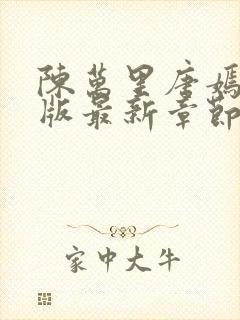 陳萬里唐嫣
版最新章節
家中大牛